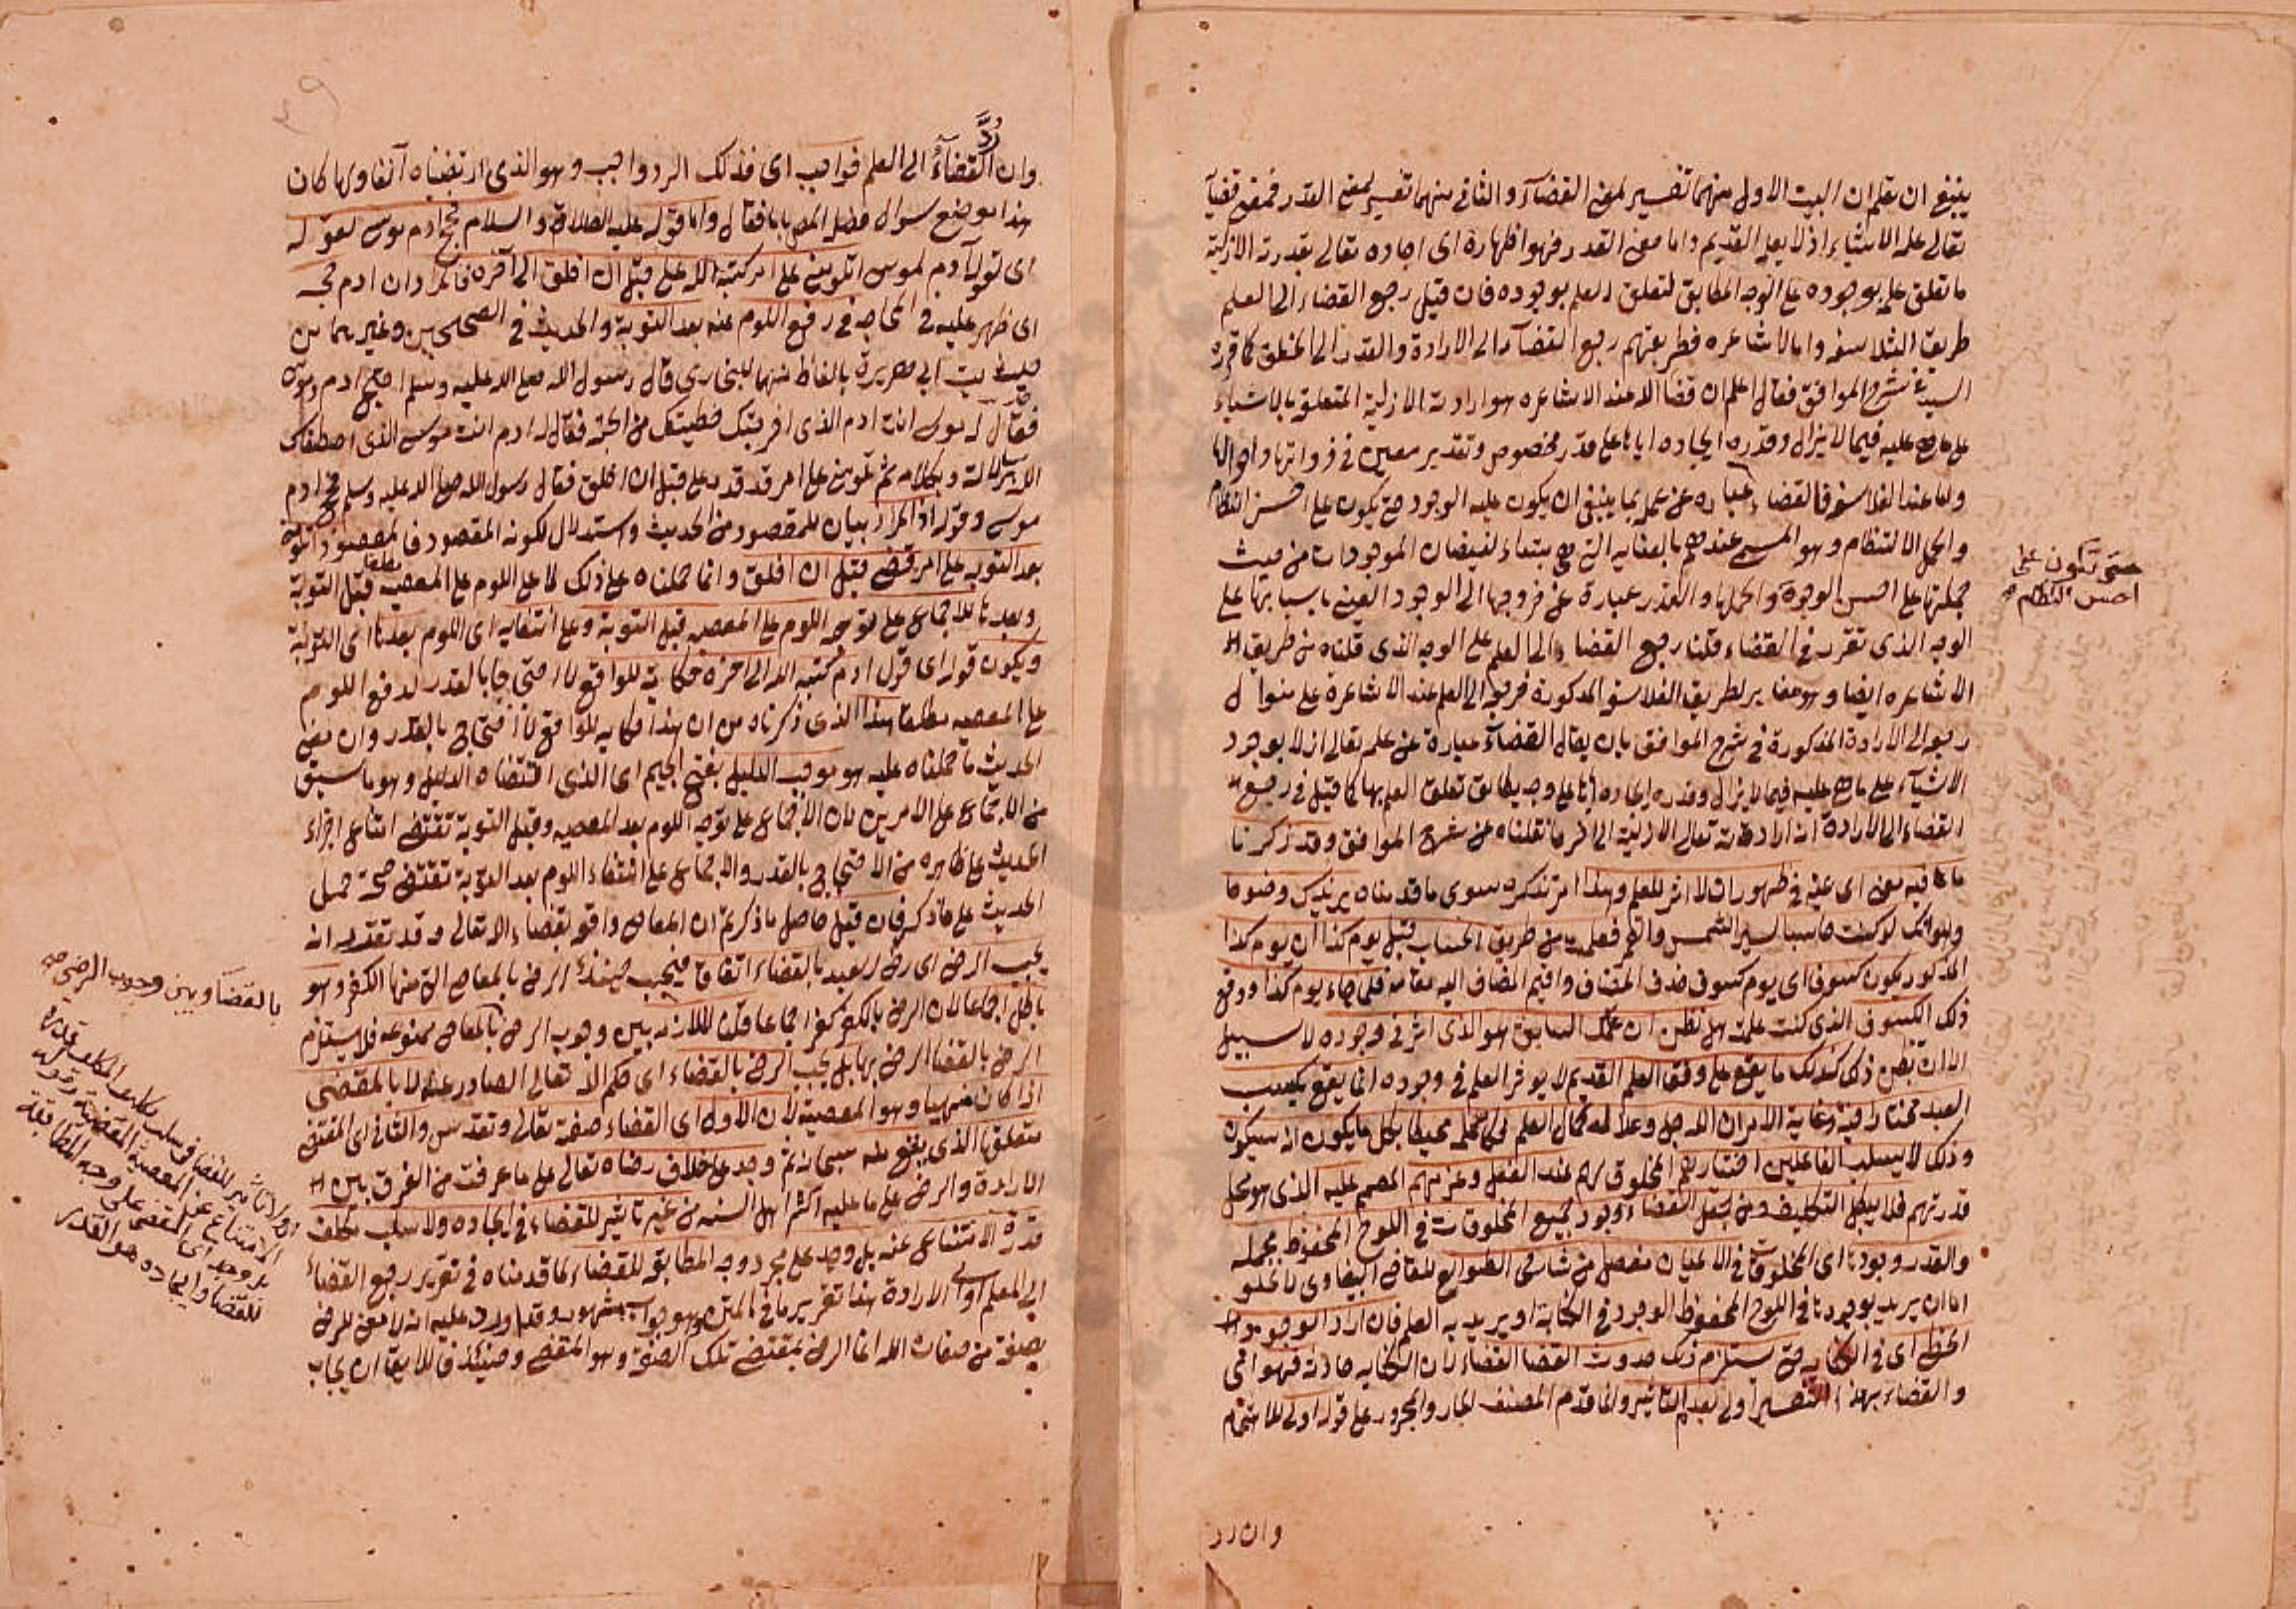 ينبغي ان يعلم ان البيت الاول منهما تفسير لمعنى القضآء والثانى منهما تفسير لمعنى القدر فمعنى قضآ
تعالى علمه الاشياء ازلا بعلمه القديم واما معنى القدر فهو اظهاره اى ايجاده تعالى بقدرته الازلية
ما تعلق علمه بوجوده على الوجه المطابق لتعلق العلم بوجوده فان قيل رجع القضاء الى العلم
طريق الفلاسفه واما الاشاعره فطريقهم رجع القضآء الى الارادة والقدر الى الخلق كما قرره
السيد فى شرح المواقف فقال اعلم ان قضا الله عند الاشاعره هو ارادته الازلية المتعلقه بالاشياء
على ما هى عليه فيما لا يزال وقدره ايجاده اياها على قدر مخصوص وتقدير معين فى ذواتها واحوالها
واما عند الفلاسفه فالقضاء عبارة عن علمه بما ينبغى ان يكون عليه الوجود حتى يكون على احسن النظام
واكمل الانتظام وهو المسمى عندهم بالعنايه التى هى مبتداء لفيضان الموجودات من حيث
جملتها على احسن الوجوه واكملها والقدر عبارة عن خروجها الى الوجود العينى باسبابها على
الوجه الذى تقرر فى القضاء قلنا رجع القضاء الى العلم على الوجه الذى قلناه من طريق
الاشاعره ايضا وهو مغاير لطريق الفلاسفه المذكورة فرجوعه الى العلم عند الاشاعرة على منوال
رجوعه الى الارادة المذكورة فى شرح المواقف بان يقال القضآء عبارة عن علمه تعالى ازلا بوجود
الاشيآء على ما هى عليه فيما لا يزال وقدره ايجاده اياها على وجه يطابق تعلق العلم بها كما قيل فى رجع
القضاء الى الارادة انه ارادته تعالى الازلية الى اخر ما نقلناه عن شرح المواقف وقد ذكرنا
ما فيه معنى اى غنية فى ظهور ان لا اثر للعلم وهذا امر نذكره سوى ما قدمناه يزيدك وضوحا
وهو انك لو كنت حاسبا لسير الشمس والقمر فعلمت من طريق الحساب قبل يوم كذا ان يوم كذا
المذكور يكون كسوف اى يوم كسوف فحذف المضاف واقيم المضاف اليه مقامه فلما جاء يوم كذا ووقع
ذلك الكسوف الذى كنت علمته هل تظن ان علمك السابق هو الذى اثر فى وجوده لا سبيل
الى ان تظن ذلك كذلك ما يقع على وفق العلم القديم لا يوثر العلم فى وجوده انما يقع بكسب
العبد مختارا فيه وغاية الامر ان الله جل وعلا له كمال العلم فكان علمه محيطا بكل ما يكون انه سيكون
وذلك لا يسلب الفاعلين اختيارهم المخلوق لهم عند الفعل وعزمهم المصمم عليه الذى هو محل
قدرتهم فلا يبطل التكليف ومن جعل القضاء وجود جميع المخلوقات فى اللوح المحفوظ مجمله
والقدر وجودها اى المخلوقات فى الاعيان مفصله من شارحى الطوالع للقاضى البيضاوى لا يخلو
اما ان يريد بوجودها فى اللوح المحفوظ الوجود فى الكتابة او يريد به العلم فان اراد الوجود
الخطى اى فى الكتابه حتى يستلزم ذلك حدوث القضا القضاء لان الكتابه حادثه فهو اقى
والقضاء بهذا التفسير اولى بعدم التاثير وانما قدم المصنف الجار والمجرور على قوله اولى للاهتمام
وان رد
حتى تكون على
احسن النظام صح
وان رد القضآء الى العلم فواجب اى فذلك الرد واجب وهو الذى ارتضيناه آنفا ولما كان
هذا موضع سوال فصل المص بابا فقال واما قوله عليه الصلاة والسلام فحج ادم موسى لقوله
اى قول آدم لموسى اتلومنى على امر كتبه الله على قبل ان اخلق الى آخره فالمراد ان ادم حجه
اى ظهر عليه فى المحاجه فى رفع اللوم عنه بعد التوبة والحديث فى الصحيحين وغيرهما من
حديث ابى هريرة بالفاظ منها للبخارى قال رسول الله صلى الله عليه وسلم احتج ادم وموسى
فقال له موسى انت ادم الذى اخرجتك خطيئتك من الجنة فقال له ادم انت موسى الذى اصطفاك
الله برسالته وبكلامه ثم تلومنى على امر قد قدر على قبل ان اخلق فقال رسول الله صلى الله عليه وسلم فحج ادم
موسى وقوله اذ المراد بيان للمقصود من الحديث واستدلال لكونه المقصود فالمقصود اللوم
بعد التوبه على امر قضى قبل ان اخلق وانما حملناه على ذلك لا على اللوم على المعصيه قبل التوبة
وبعدها للاجماع على توجه اللوم على المعصيه قبل التوبة وعلى انتفايه اى اللوم بعدها اى التوبة
ويكون قوله اى قول ادم كتبه الله الى اخره حكاية للواقع لا احتجاجا بالقدر لدفع اللوم
على المعصيه مطلقا هذا الذى ذكرناه من ان هذا حكايه للواقع لا احتجاج بالقدر وان معنى
الحديث ما حملناه عليه هو موجب الدليل بفتح الجيم اى الذى اقتضاه الدليل وهو ما سبق
من الاجماع على الامرين لان الاجماع على توجه اللوم بعد المعصيه وقبل التوبة تقتضى امتناع اجراء
الحديث على ظاهره من الاحتجاج بالقدر والاجماع على انتفاء اللوم بعد التوبة تقتضى صحة حمل
الحديث على ما ذكر فان قيل حاصل ما ذكرتم ان المعاصى واقعه بقضاء الله تعالى وقد تقرر انه
يجب الرضى اى رضى العبد بالقضاء اتفاقا فيجب حينئذ الرضى بالمعاصى التى منها الكفر وهو
باطل اجماعا لان الرضى بالكفر كفر اجماعا قلنا الملازمه بين وجوب الرضى بالمعاصى ممنوعه فلا يستلزم
الرضى بالقضا الرضى بها بل يجب الرضى بالقضاء اى حكم الله تعالى الصادر عنه لا بالمقضى
اذا كان منهيا وهو المعصية لان الاول اى القضاء صفته تعالى وتقدس والثانى اى المقضى
متعلقها الذى يقع منه سبحانه ثم وجد على خلاف رضاه تعالى على ما عرفت من الفرق بين
الارادة والرضى على ما عليه اكثر اهل السنه من غير تاثير للقضاء فى ايجاده ولا سلب مكلف
قدرة الامتناع عنه بل وجد على مجرد وجه المطابق للقضاء لما قدمناه فى تقرير رجع القضاء
الى العلم او الى الارادة هذا تقرير ما فى المتن وهو جواب مشهور وقد اورد عليه انه لا معنى للرضى
بصفة من صفات الله انما الرضى بمقتضى تلك الصفة وهو المقضى وحينئذ فاللايق ان يجاب
بالقضآ وبين وجوب الرضى صح
الامتناع عن المعصية المقضية
بل وجد اى المقضى على وجه المطابقة
للقضا وايجاده هو القدر